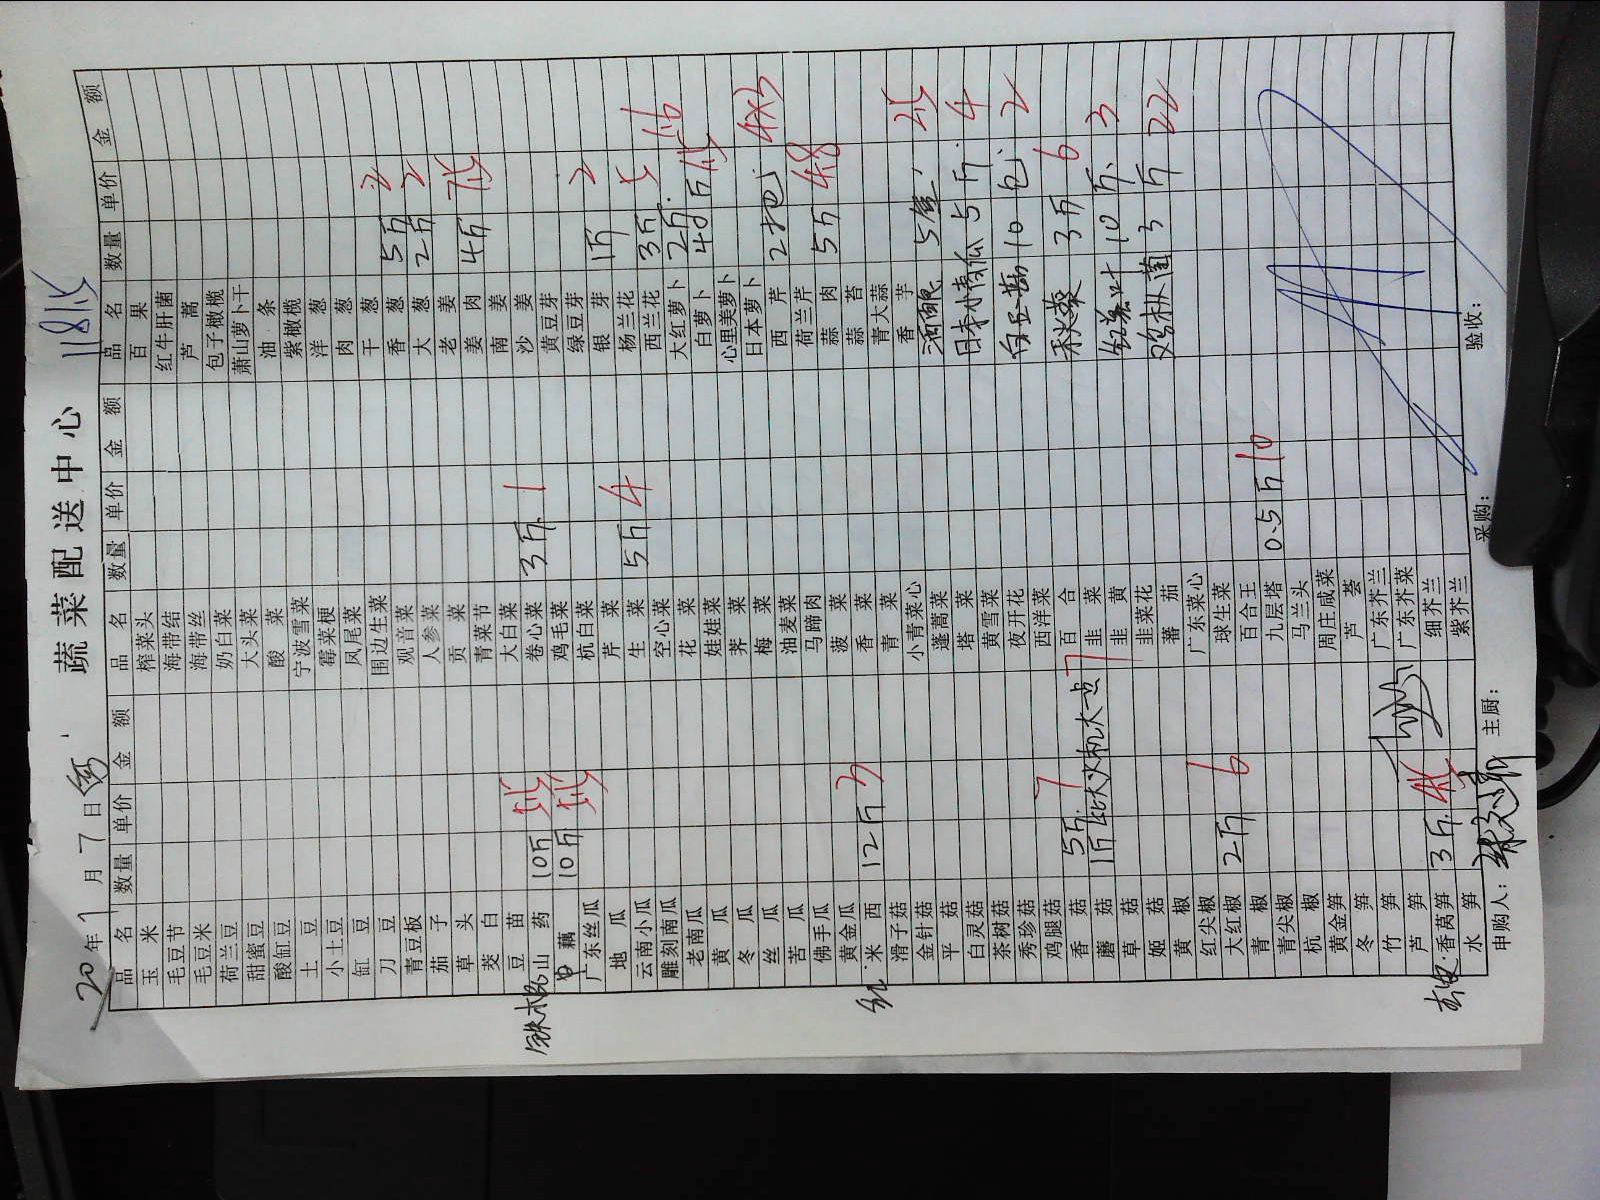 1181.5
蔬菜配送中心
20 年 1 月 7 日
品名 数量 单价 金额 品名 数量 单价 金额 品名 数量 单价 金额
玉米 榨菜头 百果
毛豆节 海带结 红牛肝菌
毛豆米 海带丝 芦蒿
荷兰豆 奶白菜 包子橄榄
甜蜜豆 大头菜 萧山萝卜干
酸缸豆 酸菜 油条
土豆 宁波雪菜 紫橄榄
小土豆 霉菜梗 洋葱
缸豆 凤尾菜 肉葱
刀豆 围边生菜 干葱
青豆板 观音菜 香葱 5斤 2
茄子 人参菜 大葱 2斤 2
草头 贡菜 老姜
茭白 青菜节 姜肉 4斤 7.5
豆苗 大白菜 南姜
铁棍山药 10斤 卷心菜 3斤 1 沙姜
藕 10斤 鸡毛菜 黄豆芽
广东丝瓜 杭白菜 绿豆芽
地瓜 芹菜 银芽 1斤 2
云南小瓜 生菜 5斤 4 杨兰花
雕刻南瓜 空心菜 西兰花 3斤 5
老南瓜 花菜 大红萝卜 2斤 1.6
黄瓜 娃娃菜 白萝卜 40斤 1.5
冬瓜 荠菜 心里美萝卜
丝瓜 梅菜 日本萝卜
苦瓜 油麦菜 西芹 2把 4x3
佛手瓜 马蹄肉 荷兰芹
黄金瓜 菠菜 蒜肉 5斤 4.8
红 米西 12斤 3 香菜 蒜苔
滑子菇 青菜 青大蒜
金针菇 小青菜心 香芋
平菇 蓬蒿菜 河间眼 5盒 2.5
白灵菇 塔菜 日本小南瓜 5斤 4
茶树菇 黄雪菜
秀珍菇 夜开花 白玉菇 10包 2
鸡腿菇 西洋菜
香菇 5斤 7 百合 秋葵 3斤 6
蘑菇 1斤 比火机大一点 7 韭菜
草菇 韭黄 10斤 3
姬菇 韭菜花
黄椒 蕃茄 鸡枞菌 3斤 22
红尖椒 广东菜心
大红椒 2斤 6 球生菜
青椒 百合王
青尖椒 九层塔 0.5斤 10
杭椒 马兰头
黄金笋 周庄咸菜
冬笋 芦荟
竹笋 广东芥兰
芦笋 广东芥菜
去皮 香莴笋 3斤 4.5 细芥兰
水笋 紫芥兰
申购人： 主厨： 采购： 验收：